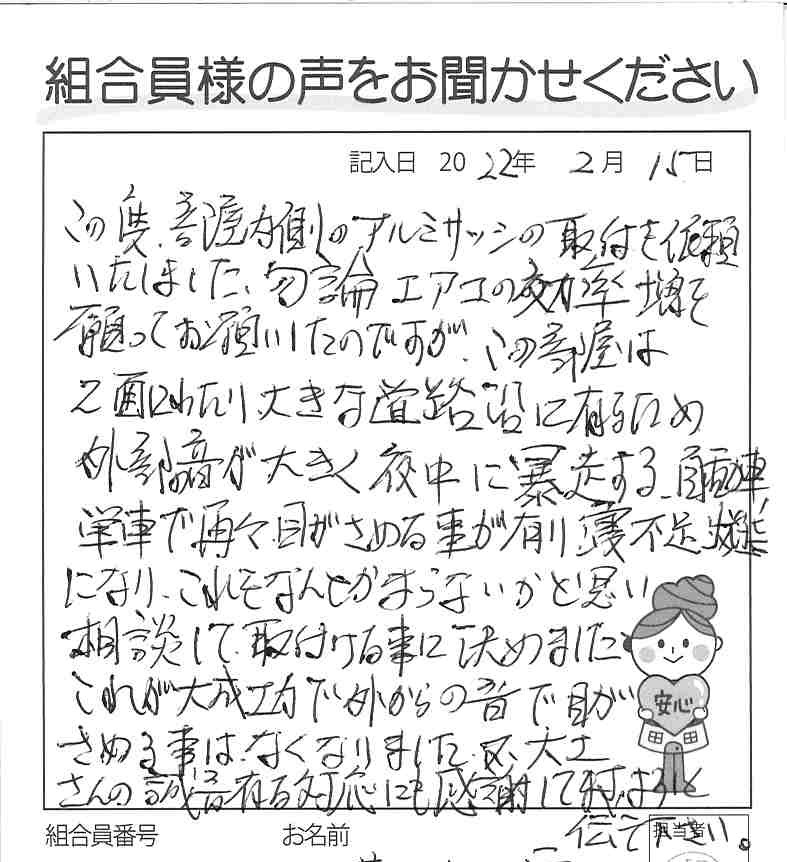 組合員様の声をお聞かせください
記入日 2022年 2月 15日
この度、部屋内側のアルミサッシの取付を依頼
いたしました、勿論エアコンの効率増を
願ってお願いしたのですが、この部屋は
2面にわたり大きな道路沿に有るため
外部音が大きく夜中に暴走する、自動車
単車で再々目がさめる事が有り寝不足
になり、これをなんとかならないかと思い
相談して取付ける事に決めました
これが大成功で外からの音で目が
さめる事は、なくなりました、又、大工
さんの誠意有る対応にも感謝して
伝て下さい。
安心
組合員番号 お名前 担当者